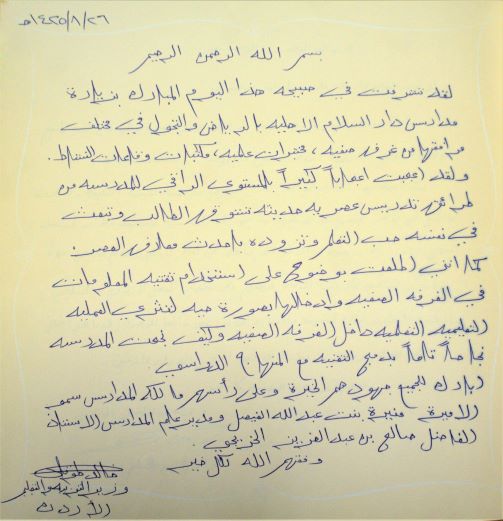 ١٤٢٥/٨/٢٦هـ
بسم الله الرحمن الرحيم
لقد تشرفت في صبيحة هذا اليوم المبارك بزيارة
مدارس دار السلام الاهلية بالرياض والتجول في مختلف
مرافقها من غرف صفية، مختبرات علمية، مكتبات وقاعات النشاط.
ولقد اعجبت اعجاباً كبيراً بالمستوى الراقي للمدرسة من
طرائق تدريس عصرية حديثة تشوق الطالب وتبعث
في نفسه حب التعلم وتزوده باحدث معارف العصر.
كما انني اطلعت بوضوح على استخدام تقنية المعلومات
في الغرفة الصفية وادخالها بصورة حية لتثري العملية
التعليمية التعلمية داخل الغرفة الصفية وكيف نجحت المدرسة
نجاحاً تاماً بدمج التقنية مع المنهاج الدراسي.
ابارك للجميع جهودهم الخيرة وعلى رأسهم مالكة المدارس سمو
الاميرة منيرة بنت عبدالله الفيصل ومدير عام المدارس الاستاذ
الفاضل صالح بن عبدالعزيز
وفقهم الله لكل خير
وزير التربية والتعليم
الأردن